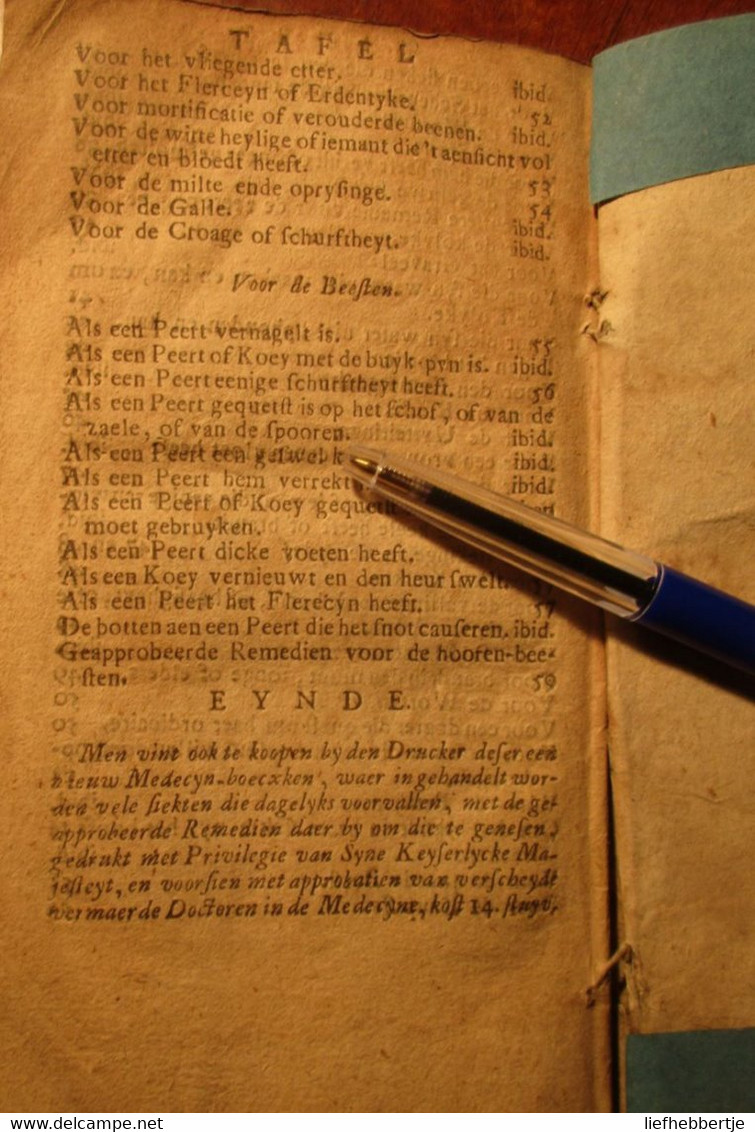 TAFEL
Voor het vliegende etter. ibid.
Voor het Flerceyn of Erdentyke. 52
Voor mortificatie of verouderde beenen. ibid.
Voor de witte heylige of iemant die 't aensicht vol
etter en bloedt heeft. 53
Voor de milte ende oprysinge. 54
Voor de Galle. ibid.
Voor de Croage of schurftheyt. ibid.
Voor de Beesten.
Als een Peert vernagelt is. 55
Als een Peert of Koey met de buyk pyn is. ibid.
Als een Peert eenige schurftheyt heeft. 56
Als een Peert gequetst is op het schof, of van de
zaele, of van de spooren. ibid.
Als een Peert een geswel ibid.
Als een Peert hem verrekt ibid.
Als een Peert of Koey gequetst
moet gebruyken.
Als een Peert dicke voeten heeft.
Als een Koey vernieuwt en den heur swelt. 57
Als een Peert het Flerecyn heeft. 57
De botten aen een Peert die het snot causeren. ibid.
Geapprobeerde Remedien voor de hooren-bee-
sten. 59
EYNDE.
Men vint ook te koopen by den Drucker deser een
nieuw Medecyn-boecxken, waer in gehandelt wor-
den vele siekten die dagelyks voorvallen, met de ge-
approbeerde Remedien daer by om die te genesen,
gedrukt met Privilegie van Syne Keyserlycke Ma-
jesteyt, en voorsien met approbatien van verscheyde
vermaerde Doctoren in de Medecyne, kost 14. stuyv.
delcampe.net
liefhebbertje